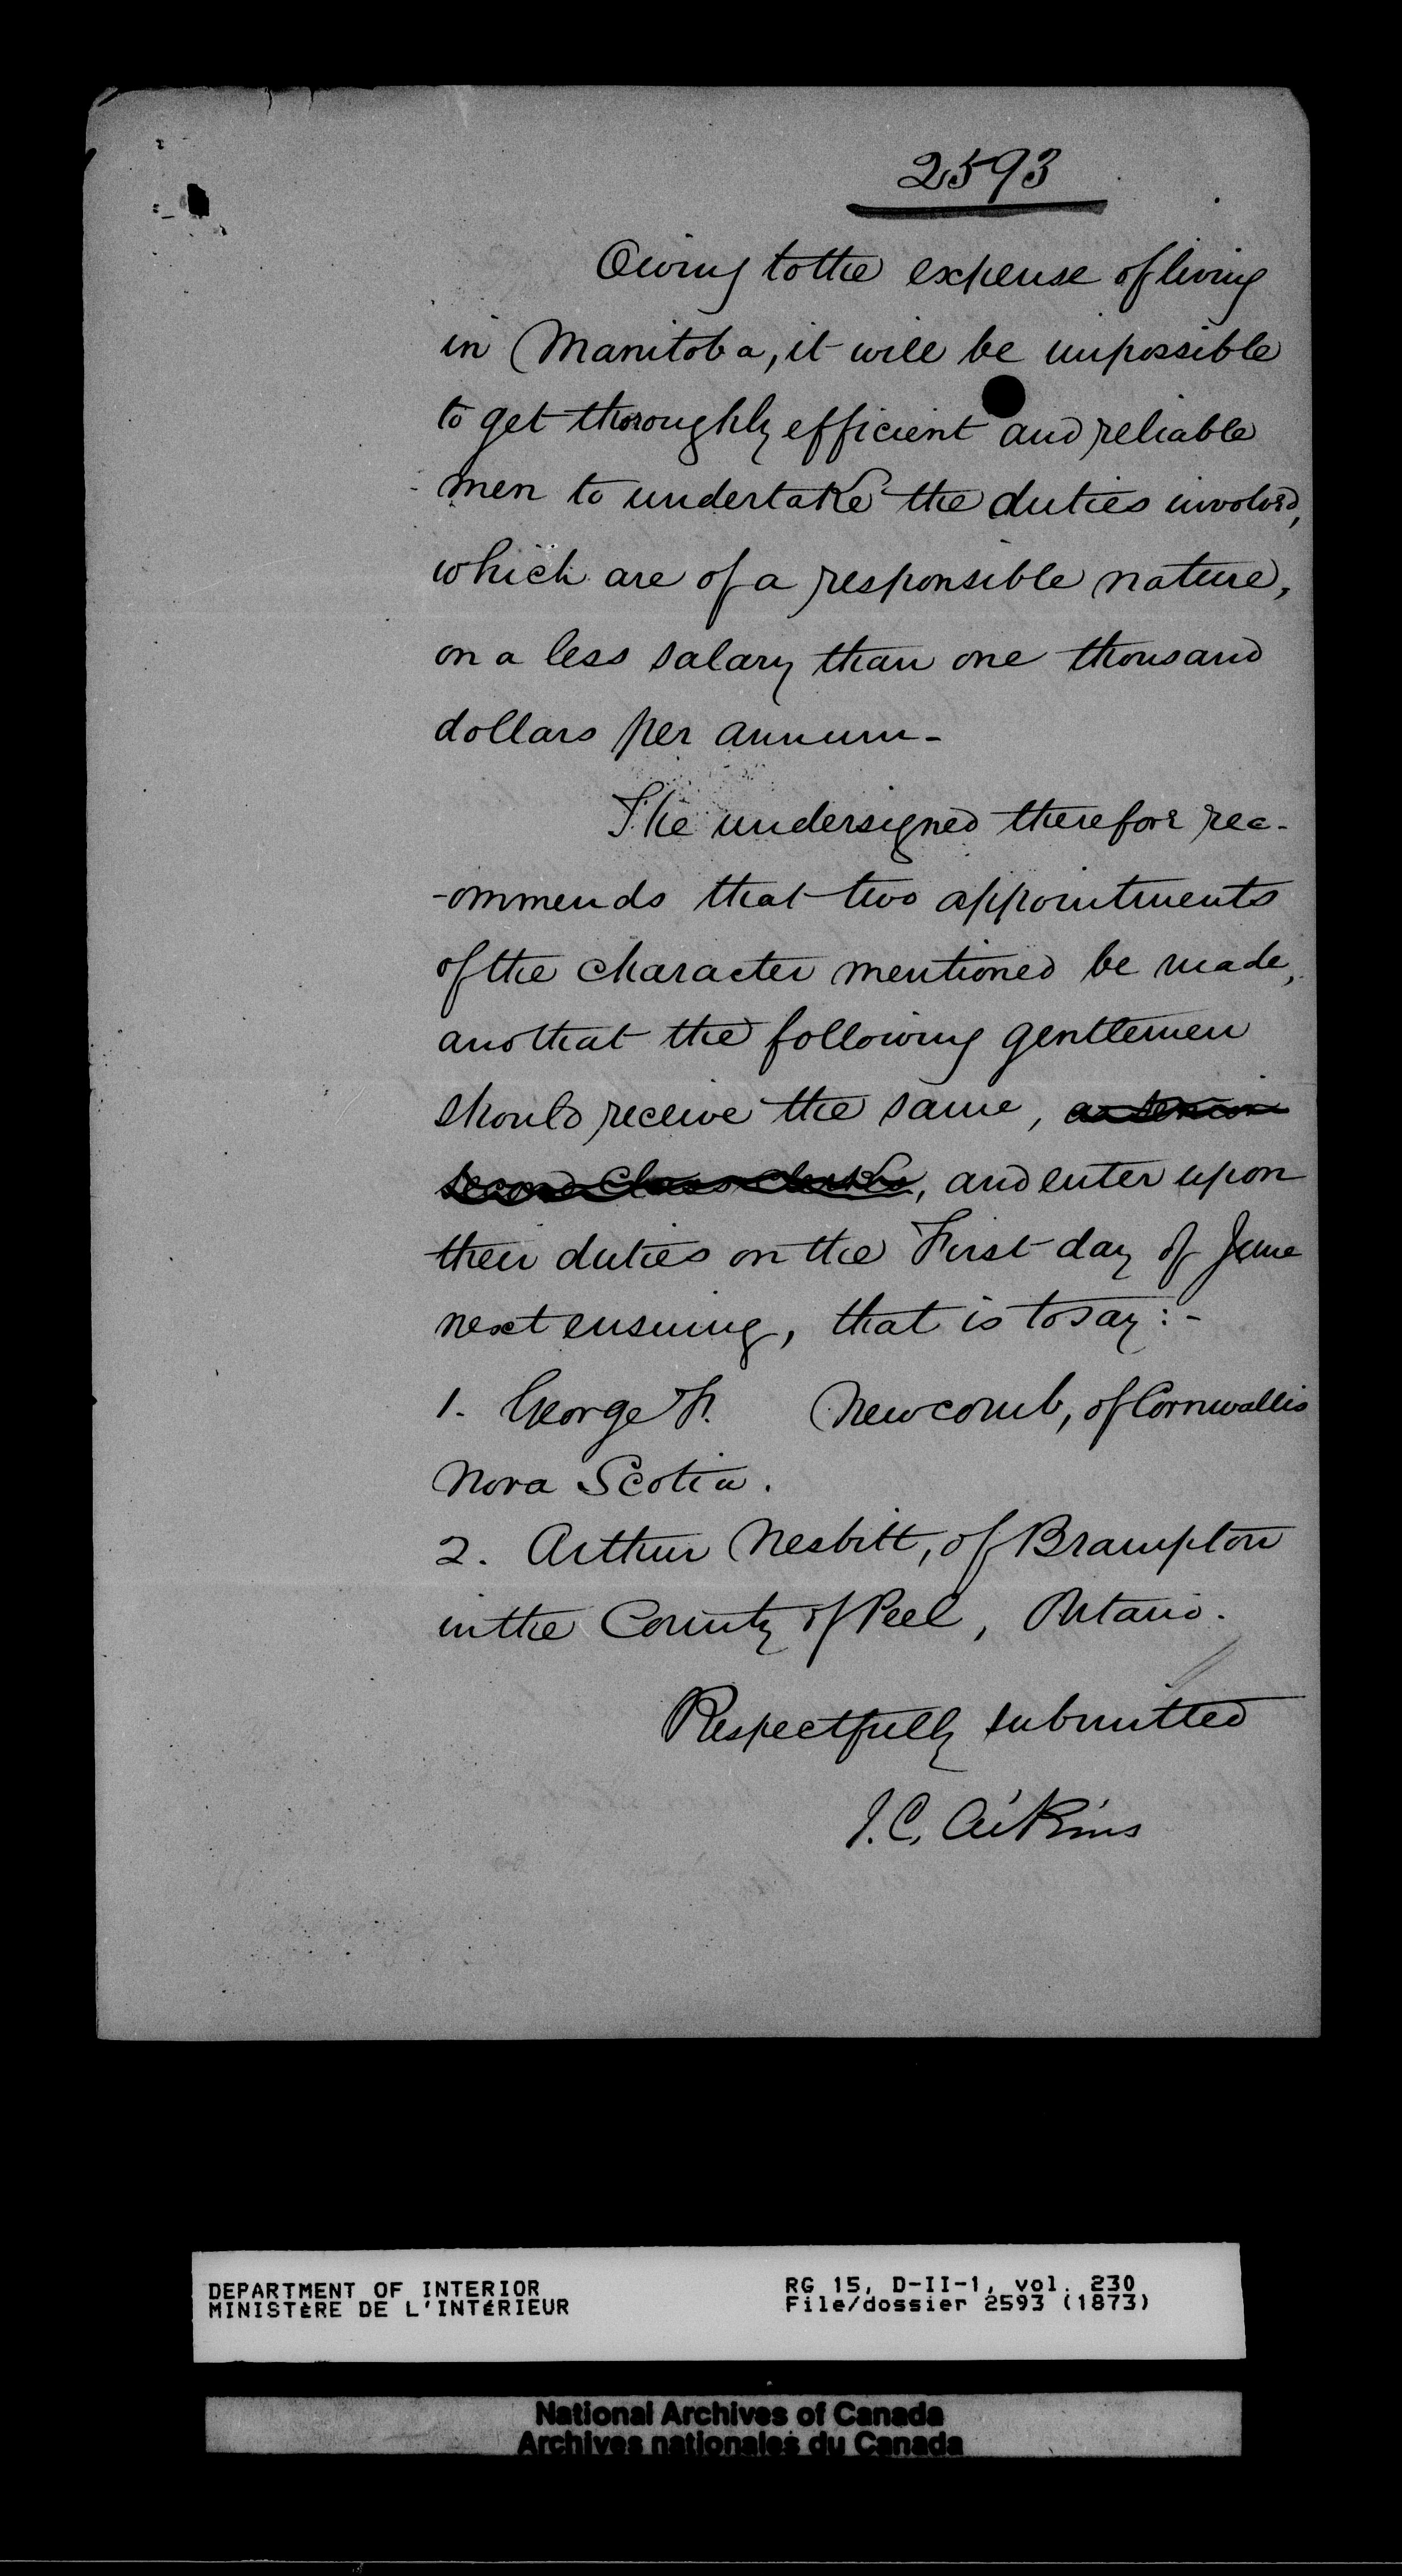 2593
Owing to the expense of living
in Manitoba, it will be impossible
to get thoroughly efficient and reliable
men to undertake the duties involved,
which are of a responsible nature,
on a less salary than one thousand
dollars per annum-
The undersigned therefore rec-
-ommends that two appointments
of the character mentioned be made,
and that the following gentlemen
should receive the same, as senior
second class clerks, and enter upon
their duties on the First day of June
next ensuing, that is to say:-
1. George F. Newcomb, of Cornwallis
Nova Scotia.
2. Arthur Nesbitt, of Brampton
in the County of Peel, Ontario.
Respectfully submitted
J.C. Aikins
DEPARTMENT OF INTERIOR RG 15, D-II-1, vol. 230
MINISTÈRE DE L'INTÉRIEUR File/dossier 2593 (1873)
National Archives of Canada
Archives nationales du Canada